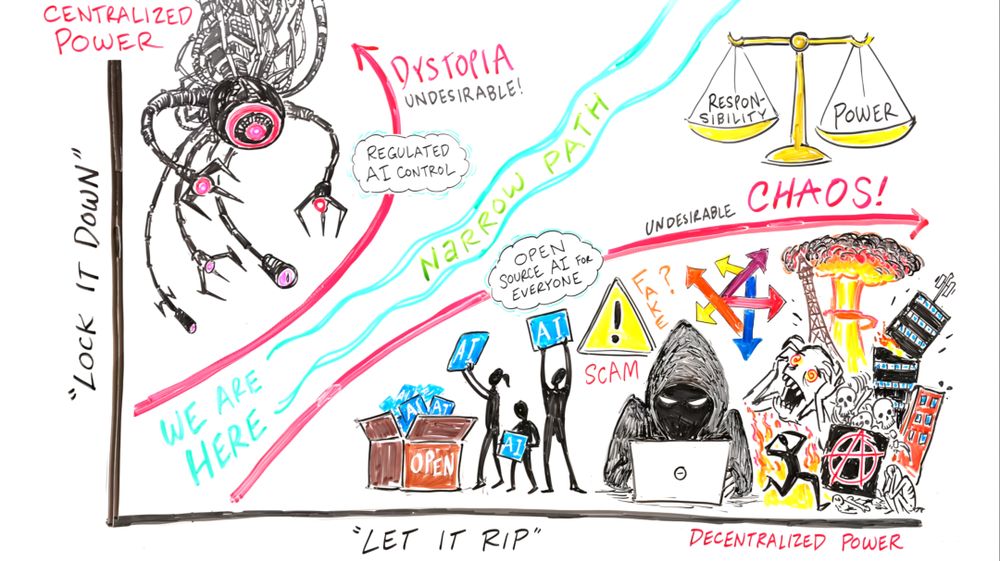 CENTRALIZED
POWER
"LOCK IT DOWN"
DYSTOPIA
UNDESIRABLE!
REGULATED
AI CONTROL
NARROW PATH
RESPON-
SIBILITY
POWER
UNDESIRABLE CHAOS!
OPEN
SOURCE AI FOR
EVERYONE
WE ARE
HERE
AI
AI
AI
AI
AI
OPEN
!
FAKE?
SCAM
A
"LET IT RIP"
DECENTRALIZED POWER